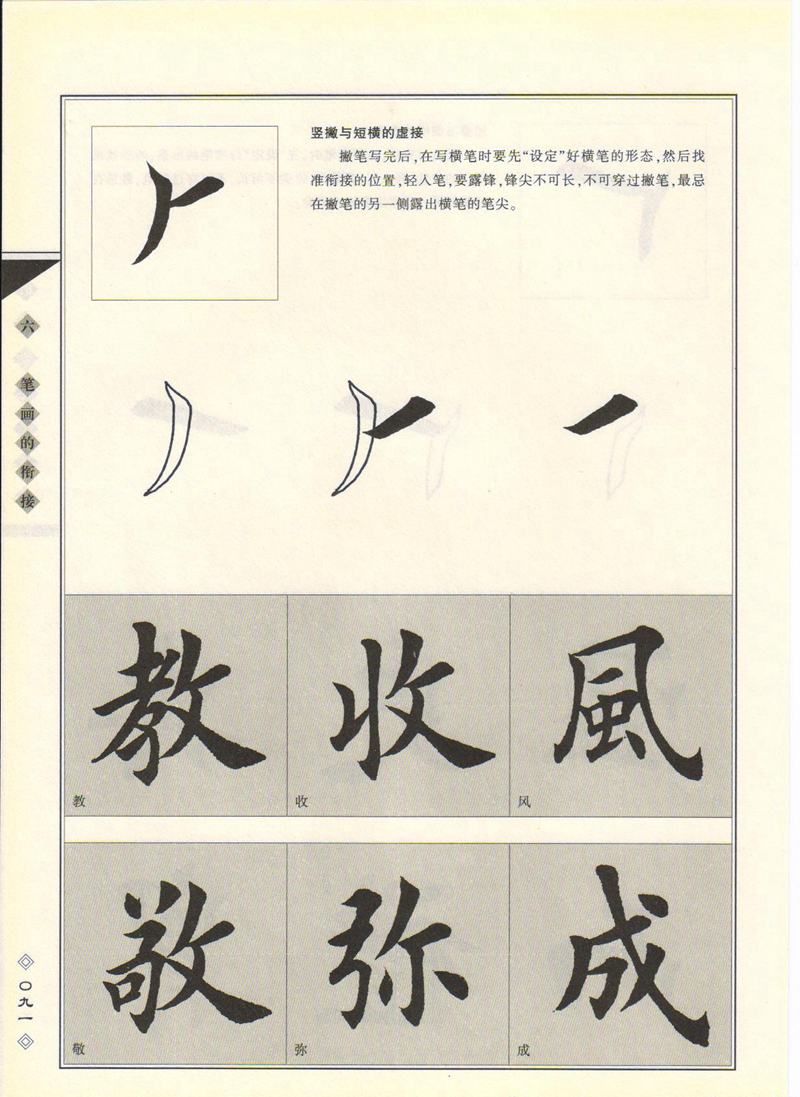 竖撇与短横的虚接
撇笔写完后，在写横笔时要先“设定”好横笔的形态，然后找
准衔接的位置，轻入笔，要露锋，锋尖不可长，不可穿过撇笔，最忌
在撇笔的另一侧露出横笔的笔尖。
六
笔画的衔接
教 收 風
教 收 风
敬 弥 成
敬 弥 成
〇九一